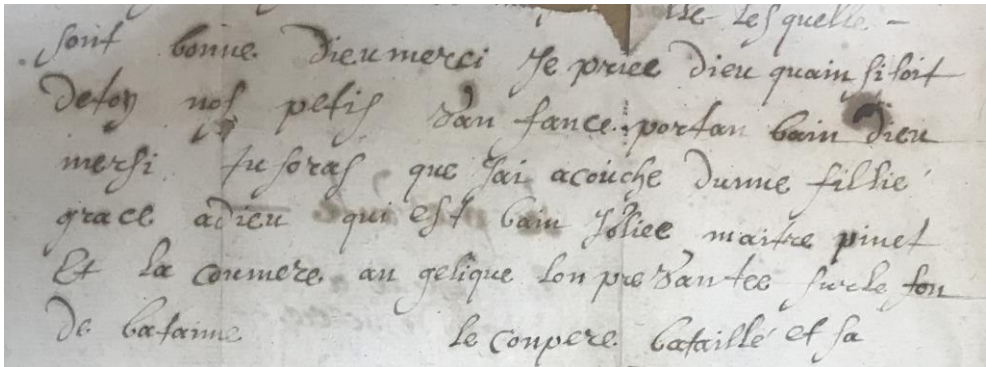 lesquelle -
sont bonne dieumerci Je priee dieu quainsi soit
detoy nos petis danfance portan bain dieu
mersi tu soras que jai acouche dunne fillié
grace adieu qui est bain joliee maitre pinet
Et la coumere angelique lon predantee sur le fon
de bataime le coupere bataillé et sa